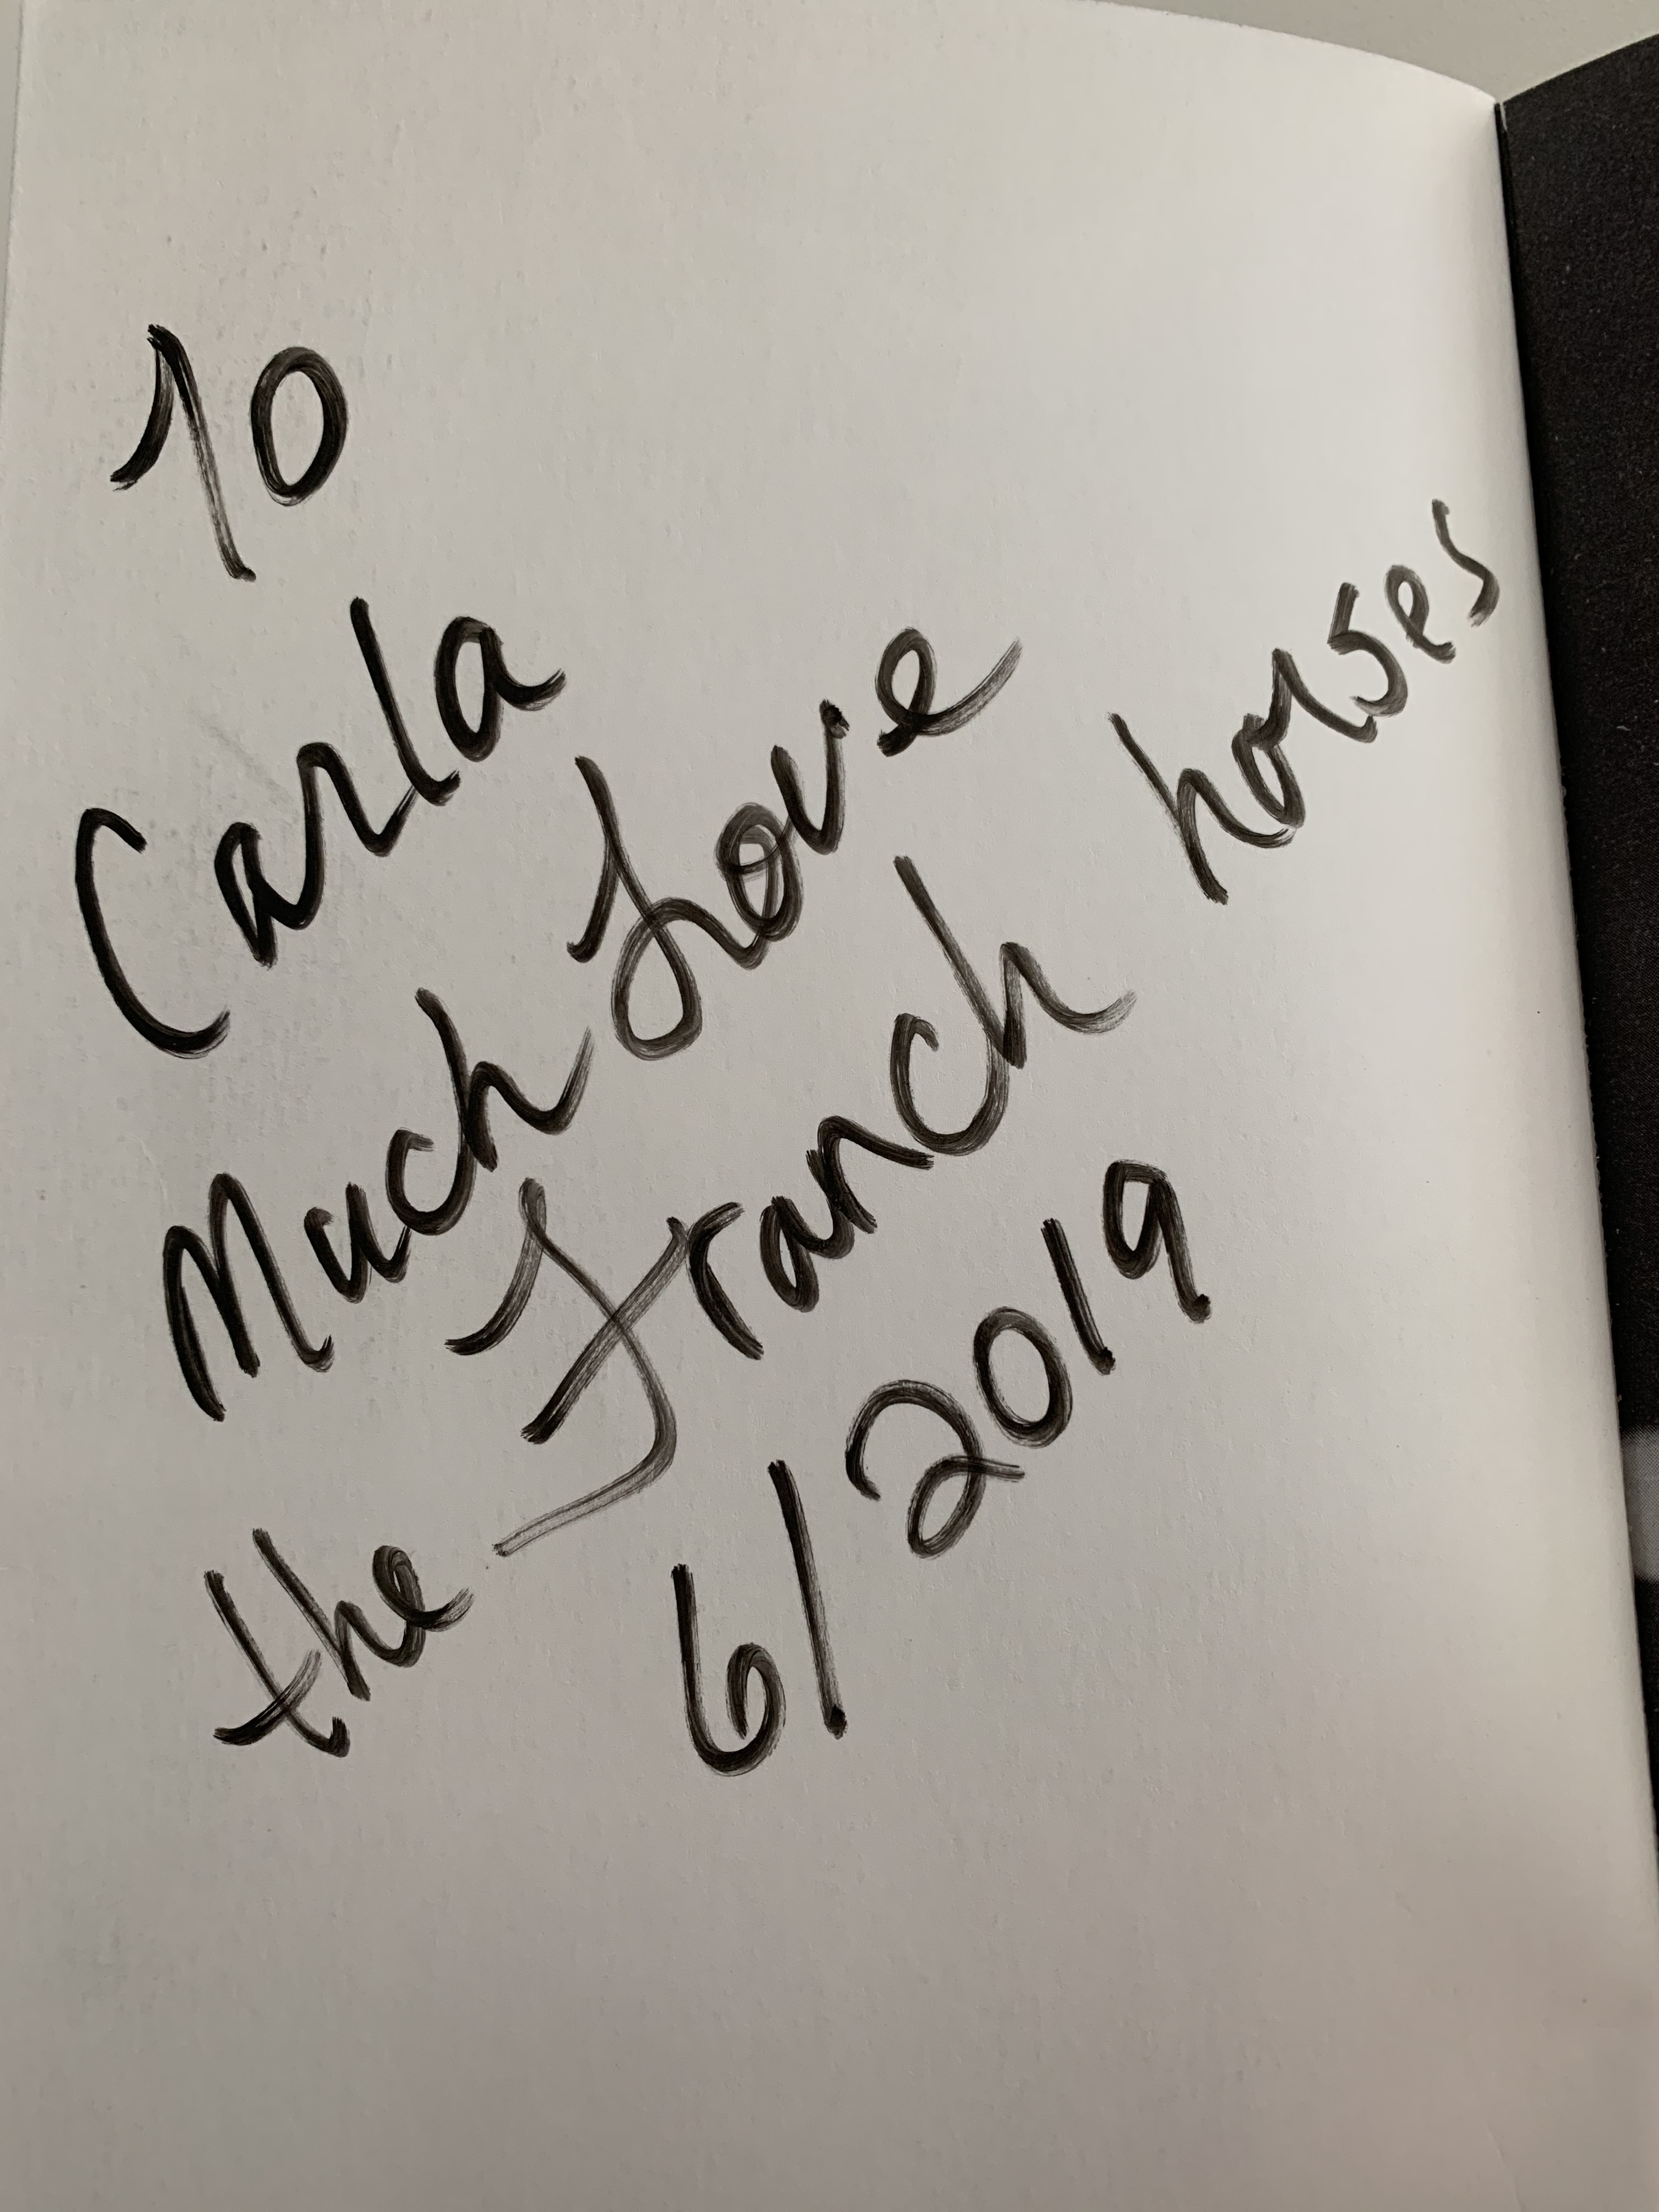 To
Carla
Much Love
the Franch horses
6/2019